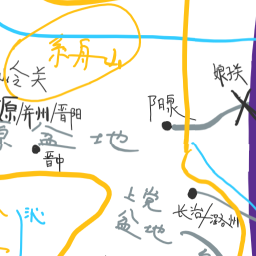 系舟山
关
娘子关
原/并州/晋阳
阳泉
原 盆 地
晋中
上党
盆地
沁
长治/潞州